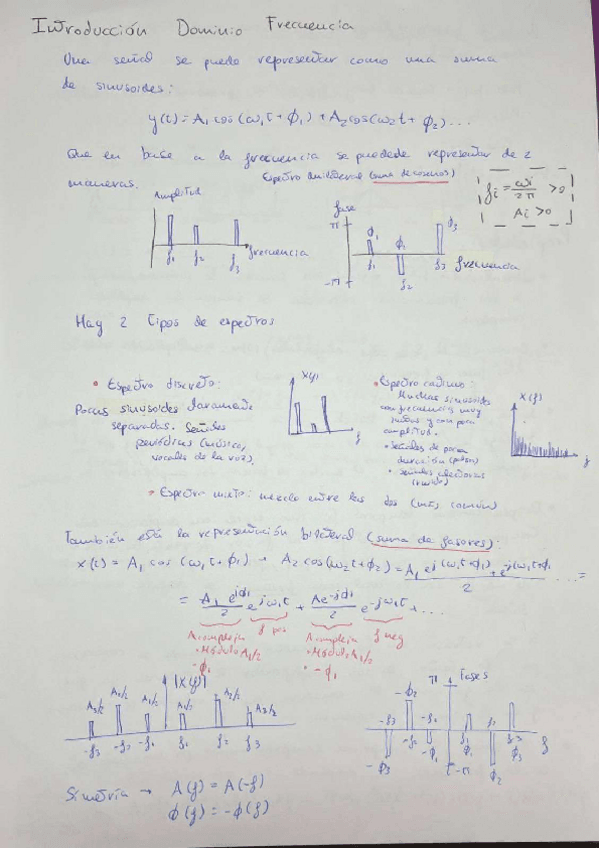 Introducción Dominio Frecuencia
Una señal se puede representar como una suma
de sinusoides:
y(t) = A₁ cos (ω₁t + ϕ₁) + A₂ cos(ω₂t + ϕ₂) ...
Que en base a la frecuencia se puedede representar de 2
maneras.
Espectro unilateral (suma de cosenos)
fi = ωi/2π > 0
Ai > 0
Amplitud
f₁ f₂ f₃
frecuencia
fase
π
ϕ₁ ϕ₁ ϕ₃
f₁ f₂ f₃ frecuencia
-π
Hay 2 tipos de espectros
• Espectro discreto:
Pocas sinusoides claramente
separadas. Señales
periódicas (música,
vocales de la voz).
X(f)
f
• Espectro continuo:
Muchas sinusoides
con frecuencia muy
juntas y con poca
amplitud.
• Señales de poca
duración (pulsos)
• Señales aleatorias
(ruido)
X(f)
f
• Espectro mixto: mezcla entre las dos (más común)
También está la representación bilateral (suma de fasores):
x(t) = A₁ cos (ω₁t + ϕ₁) + A₂ cos(ω₂t + ϕ₂) = A₁ e^j(ω₁t+ϕ₁) + e^-j(ω₁t+ϕ₁ / 2 ... =
= A₁ e^jϕ₁/2 e^jω₁t + A e^-jϕ₁/2 e^-jω₁t + ...
A compleja f pos A compleja f neg
• Módulo A₁/2 • Módulo A₁/2
- ϕ₁ - ϕ₁
|X(f)|
A₃/2 A₂/2 A₁/2 A₁/2 A₂/2 A₃/2
-f₃ -f₂ -f₁ f₁ f₂ f₃
π fases
-ϕ₂
-f₃ -f₂ -f₁ f₁ f₂ f
-ϕ₃ -ϕ₁ ϕ₁ ϕ₃
-π ϕ₂
Simetría → A(f) = A(-f)
ϕ(f) = -ϕ(f)